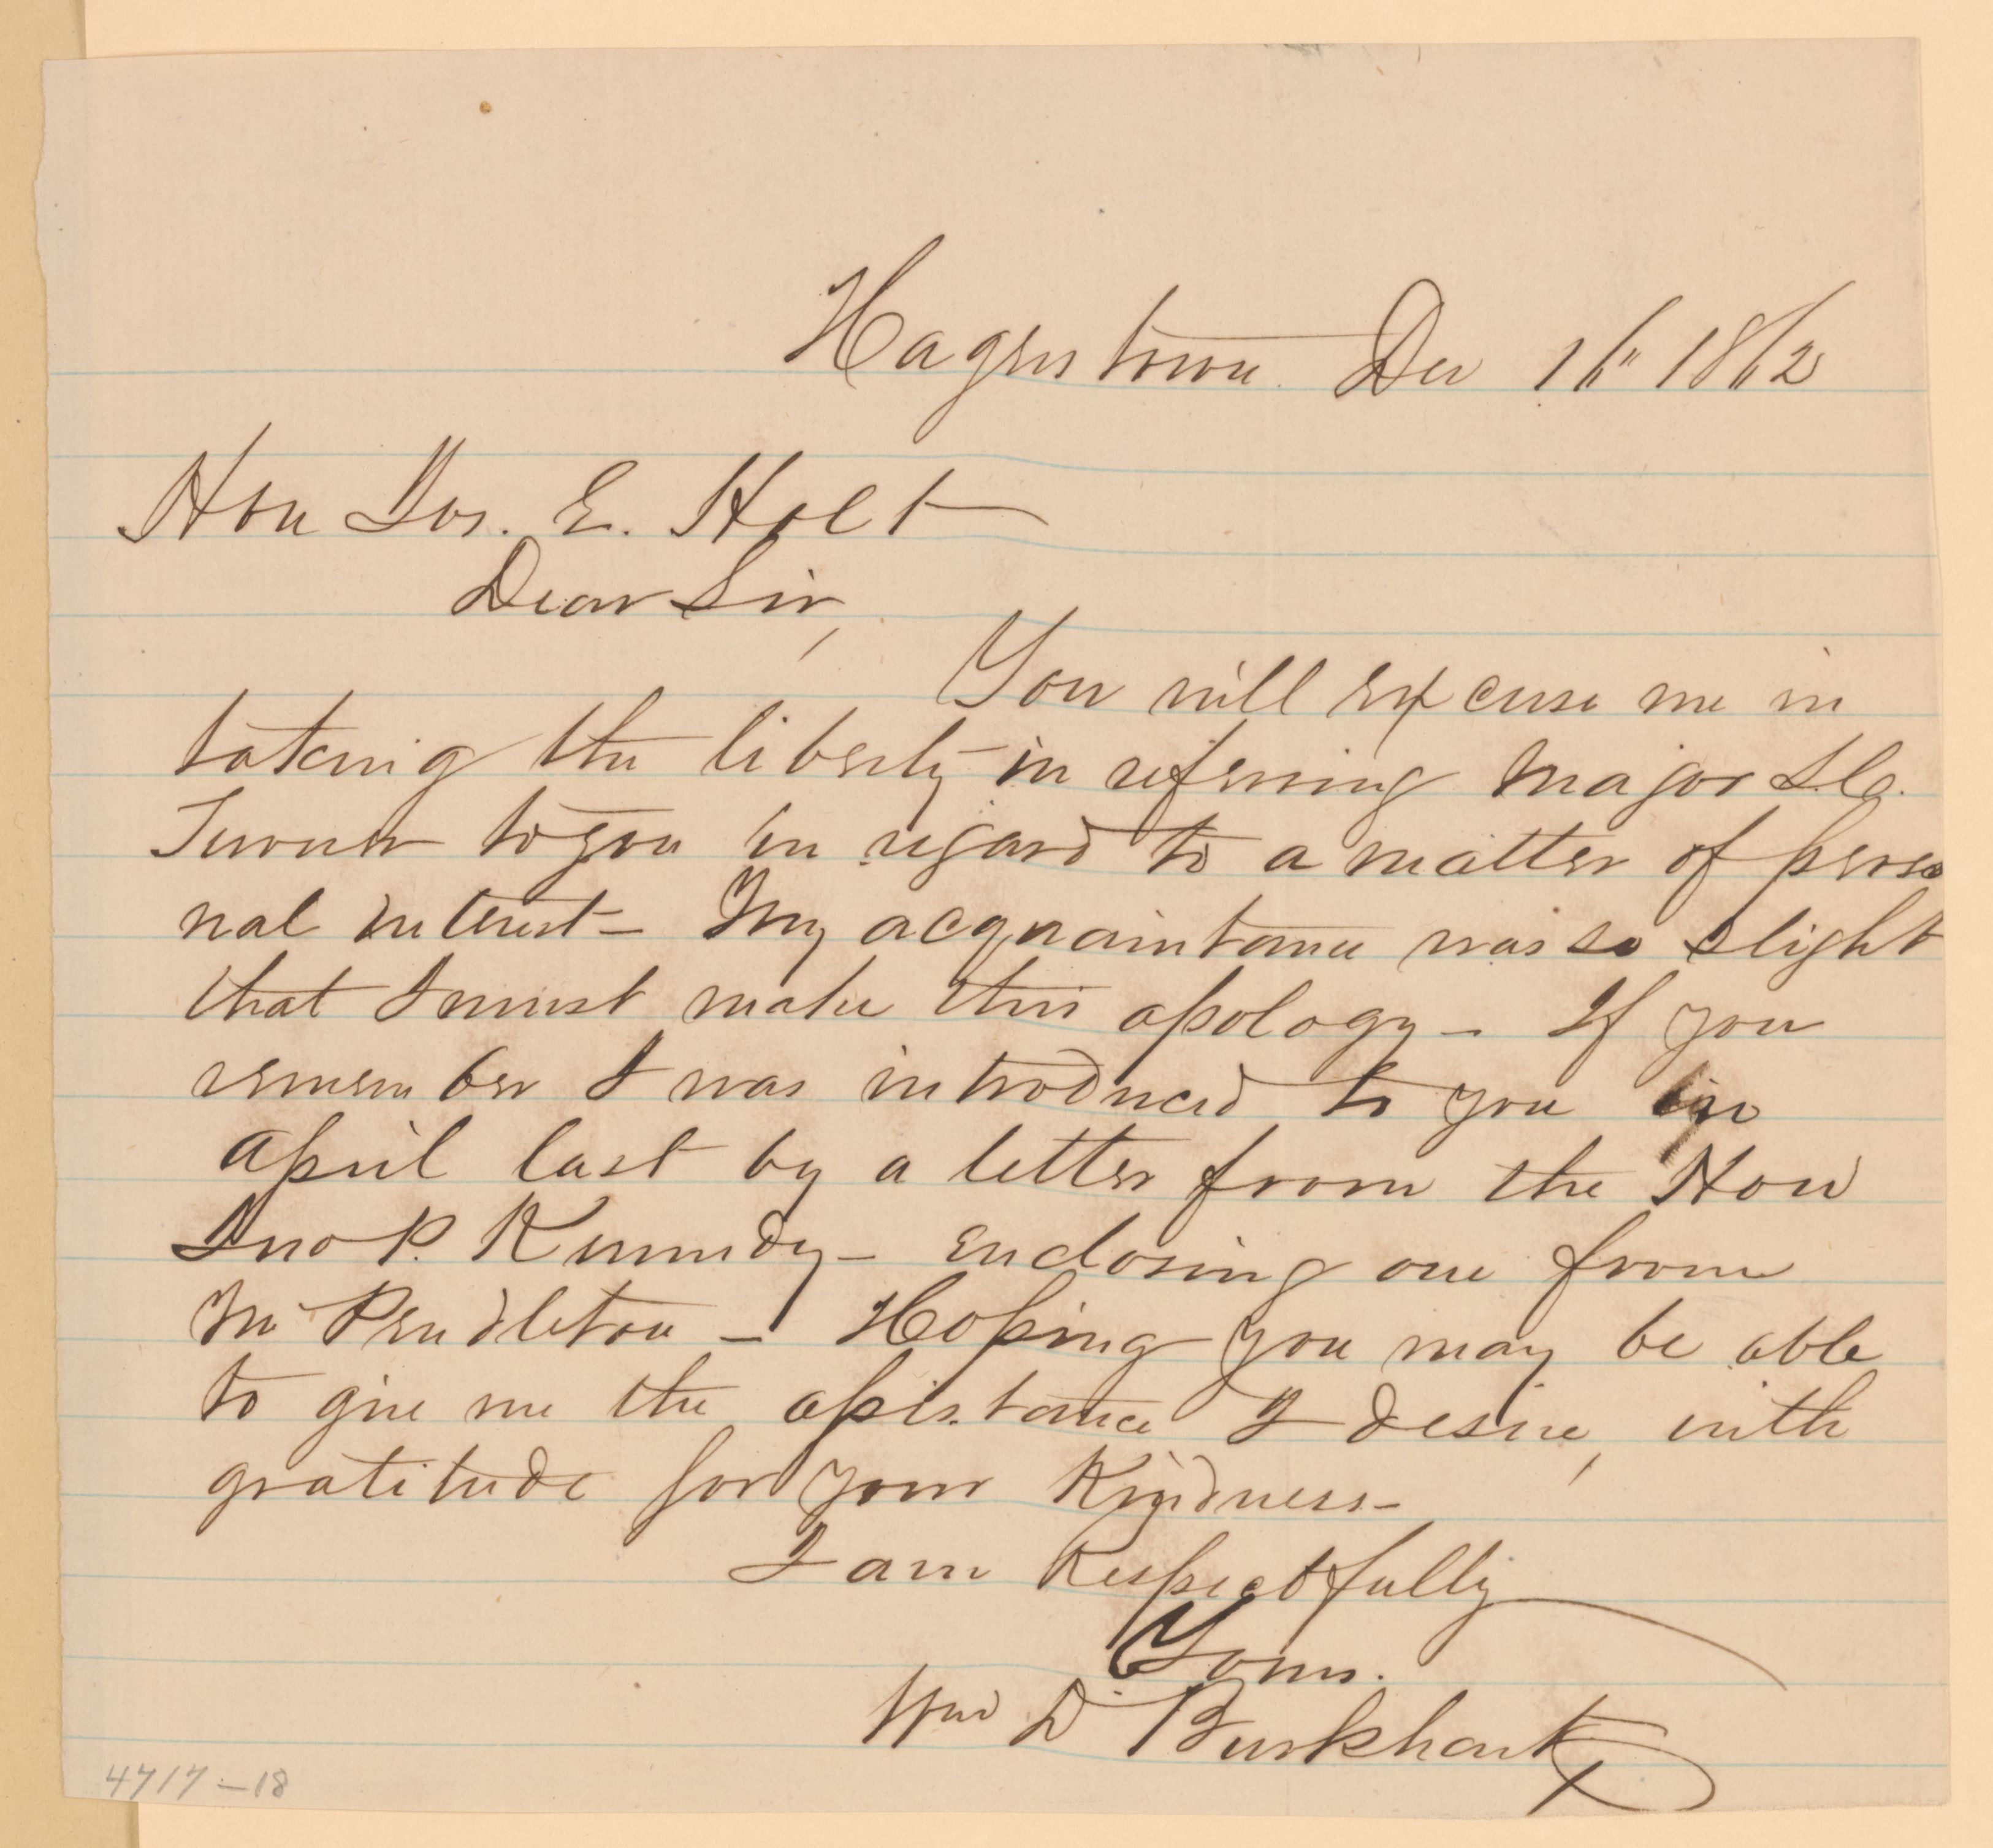 Hagerstown Dec 16" 1862
Hon Jos. E. Holt
Dear Sir,
You will excuse me in
taking the liberty in refering Major L. C.
Turner to you in regard to a matter of perso
nal interest – My acquaintance was so slight
that I must make this apology – If you
remember I was introduced to you in
April last by a letter from the Hon
Jno P. Kennedy – enclosing one from
Mr Pendleton – Hoping you may be able
to give me the assistance I desire, with
gratitude for your kindness –
I am Respectfully
Yours.
Wm D. Burkhart
4717–18